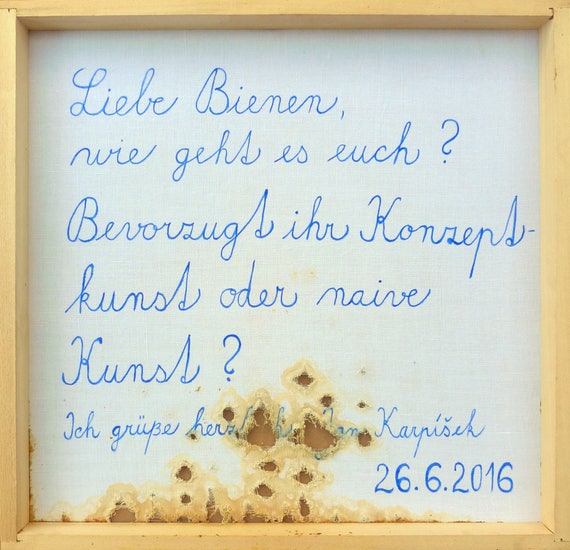 Liebe Bienen,
wie geht es euch ?
Bevorzugt ihr Konzept-
kunst oder naive
Kunst ?
Ich grüße Jan Karpíšek
26.6.2016